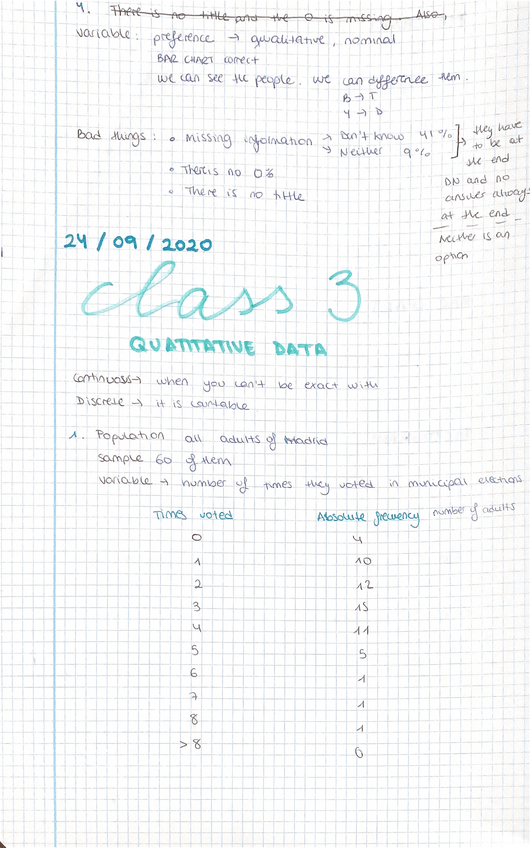 4. There is no tittle and the 0 is missing. Also,
variable: preference → qualitative, nominal
BAR CHART correct
we can see the people. we can differnce them.
B → T
Y → D
Bad things: • Missing information → Don't know 41%
→ Neither 9%
they have to be at the end
DN and no answer always at the end
Neither is an option
• There is no 0%
• There is no tittle
24/09/2020
Class 3
QUATITATIVE DATA
Continuoss → when you can't be exact with
Discrete → it is cantable
1. Population all adults of Madrid
sample 60 of them
variable → number of times they voted in municipal elections
Times voted Absolute frecuency number of adults
0 4
1 10
2 12
3 15
4 11
5 5
6 1
7 1
8 1
> 8 0